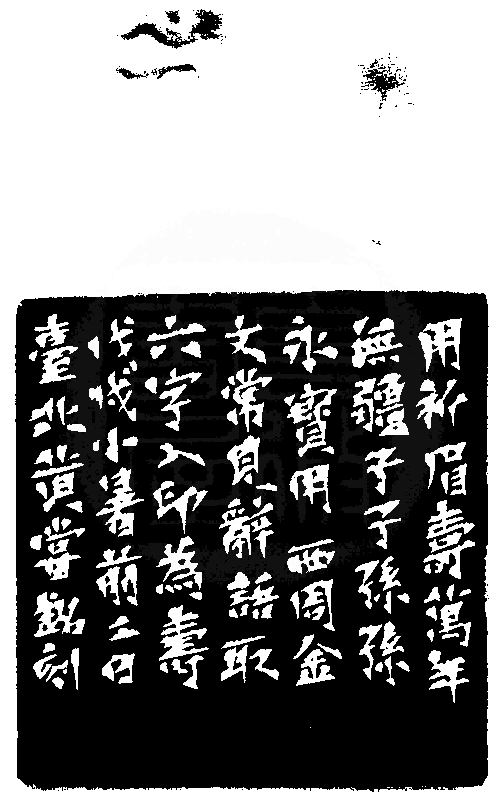 用祈眉壽萬年
無疆子子孫孫
永寶用西周金
文常見辭語取
六字入印為壽
戊戌小暑前二日
臺北黃嘗銘刻